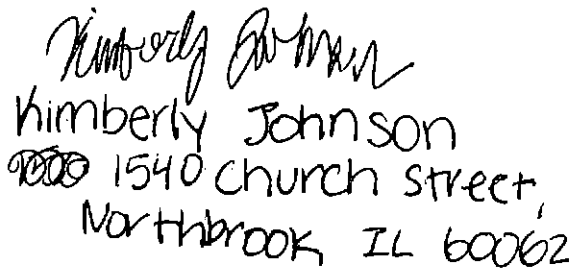 Kimberly Johnson
Kimberly Johnson
1540 Church Street,
Northbrook, IL 60062